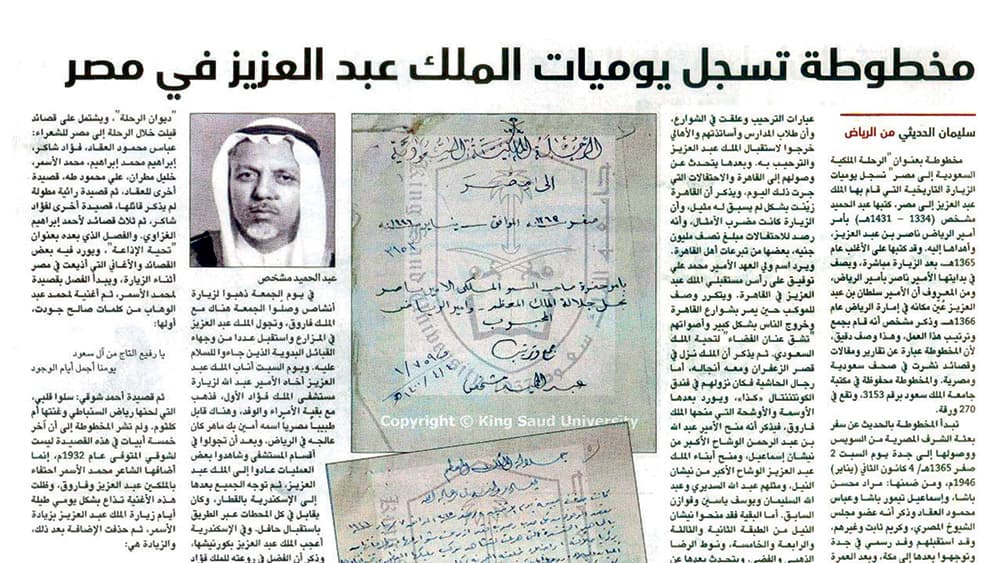 مخطوطة تسجل يوميات الملك عبد العزيز في مصر
سليمان الحديثي من الرياض
مخطوطة بعنوان "الرحلة الملكية
السعودية إلى مصر" تسجل يوميات
الزيارة التاريخية التي قام بها الملك
عبد العزيز إلى مصر، كتبها عبد الحميد
مشخص (1334 – 1431هـ) بأمر
أمير الرياض ناصر بن عبد العزيز،
وأهداها إليه. وقد كتبها على الأغلب عام
1365هـ، بعد الزيارة مباشرة، ويصف
في بدايتها الأمير ناصر بأمير الرياض،
ومن المعروف أن الأمير سلطان بن عبد
العزيز عيّن مكانه في إمارة الرياض عام
1366هـ. وذكر مشخص أنه قام بجمع
وترتيب هذا العمل، وهذا وصف دقيق،
لأن المخطوطة عبارة عن تقارير ومقالات
وقصائد نشرت في صحف سعودية
ومصرية. والمخطوطة محفوظة في مكتبة
جامعة الملك سعود برقم 3153، وتقع في
270 ورقة.
تبدأ المخطوطة بالحديث عن سفر
بعثة الشرف المصرية من السويس
ووصولها إلى جدة يوم السبت 2
صفر 1365هـ/ 4 كانون الثاني (يناير)
1946م، ومن ضمنها: مراد محسن
باشا، وإسماعيل تيمور باشا وعباس
محمود العقاد وذكر أنه عضو مجلس
الشيوخ المصري، وكريم ثابت وغيرهم،
وقد استقبلهم وفد رسمي في جدة
وتوجهوا بعدها إلى مكة، وبعد العمرة
عبارات الترحيب وعلقت في الشوارع،
وأن طلاب المدارس وأساتذتهم والأهالي
خرجوا لاستقبال الملك عبد العزيز
والترحيب به. وبعدها يتحدث عن
وصولهم إلى القاهرة والاحتفالات التي
جرت ذلك اليوم، ويذكر أن القاهرة
زيّنت بشكل لم يسبق له مثيل، وأن
الزيارة كانت مضرب الأمثال، وأنه
رصد للاحتفالات مبلغ نصف مليون
جنيه، بعضها من تبرعات أهل القاهرة.
ويرد اسم ولي العهد الأمير محمد علي
توفيق على رأس مستقبلي الملك عبد
العزيز في القاهرة. ويتكرر وصف
للموكب حين يمر بشوارع القاهرة
وخروج الناس بشكل كبير وأصواتهم
"تشق عنان الفضاء" لتحية الملك
السعودي. ثم يذكر أن الملك نزل في
قصر الزعفران ومعه أنجاله، أما
رجال الحاشية فكان نزولهم في فندق
الكونتننتال «كذا»، ويورد بعدها
الأوسمة والأوشحة التي منحها الملك
فاروق، فيذكر أنه منح الأمير عبد الله
بن عبد الرحمن الوشاح الأكبر من
نشان إسماعيل، ومنح أبناء الملك
عبد العزيز الوشاح الأكبر من نشان
النيل، ومثلهم عبد الله السديري وعبد
الله السليمان ويوسف ياسين وفوازن
السابق. أما البقية فقد منحوا نيشان
النيل من الطبقة الثانية والثالثة
والرابعة والخامسة، ونوط الرضا
الذهبي والفضي. ويتحدث بعدها عن
الرحلة الملكية السعودية
الى مصر
صفر ١٣٦٥ الموافق يناير ١٩٤٦
بأمر حضرة صاحب السمو الملكي الامير ناصر
نجل جلالة الملك المعظم وأمير الرياض
المحبوب
جمع وترتيب
عبد الحميد مشخص
Copyright © King Saud University
عبد الحميد مشخص
في يوم الجمعة ذهبوا لزيارة
أنشاص وصلوا الجمعة هناك مع
الملك فاروق، وتجول الملك عبد العزيز
في المزارع واستقبل عددا من وجهاء
القبائل البدوية الذين جاءوا للسلام
عليه. ويوم السبت أناب الملك عبد
العزيز أخاه الأمير عبد الله لزيارة
مستشفى الملك فؤاد الأول، فذهب
مع بقية الأمراء والوفد، وهناك قابل
طبيبا مصريا اسمه أمين بك ماهر كان
عالجه في الرياض، وبعدها تجولوا في
أقسام المستشفى وشاهدوا بعض
العمليات عادوا إلى الملك عبد
العزيز. ثم توجه الجميع بعدها
إلى الإسكندرية بالقطار، وكان
يقابل في كل المحطات عبر الطريق
باستقبال حافل. وفي الإسكندرية
أعجب الملك عبد العزيز بكورنيشها،
وذكر أن الفضل في روعته للملك فؤاد
"ديوان الرحلة"، ويشتمل على قصائد
قيلت خلال الرحلة إلى مصر للشعراء:
عباس محمود العقاد، فؤاد شاكر،
إبراهيم محمد إبراهيم، محمد الأسمر،
خليل مطران، علي محمود طه، قصيدة
أخرى للعقاد، ثم قصيدة رائية مطولة
لم يذكر قائلها، قصيدة أخرى لفؤاد
شاكر، ثم ثلاث قصائد لأحمد إبراهيم
الغزاوي. والفصل الذي بعده بعنوان
"تحية الإذاعة"، ويورد فيه بعض
القصائد والأغاني التي أذيعت في مصر
أثناء الزيارة، ويبدأ الفصل بقصيدة
لمحمد الأسمر، ثم أغنية لمحمد عبد
الوهاب من كلمات صالح جودت،
أولها:
يا رفيع التاج من آل سعود
يومنا أجمل أيام الوجود
ثم قصيدة أحمد شوقي: سلوا قلبي،
التي لحنها رياض السنباطي وغنتها أم
كلثوم. ولم تشر المخطوطة إلى أن آخر
خمسة أبيات في هذه القصيدة ليست
لشوقي المتوفى عام 1932م، إنما
أضافها الشاعر محمد الأسمر احتفاء
بالملكين عبد العزيز وفاروق، وظلت
هذه الأغنية تذاع بشكل يومي طيلة
أيام زيارة الملك عبد العزيز بزيادة
الأسمر، ثم حذفت الإضافة بعد ذلك،
والزيادة هي: